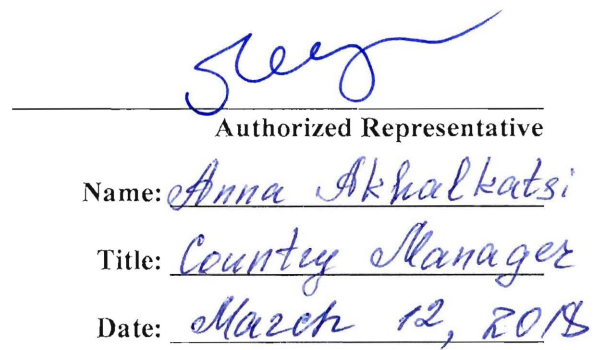 Authorized Representative
Name: Anna Akhalkatsi
Title: Country Manager
Date: March 12, 2018